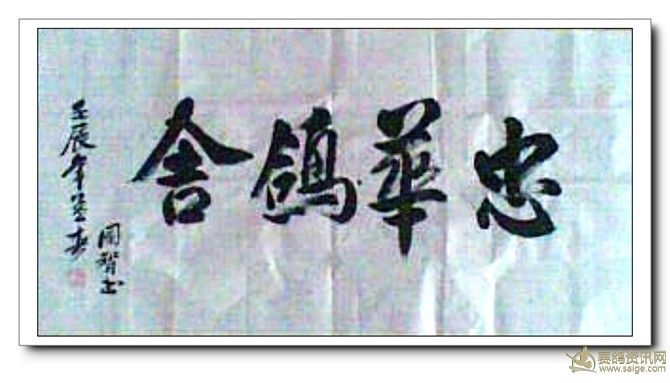 忠華鴿舍
壬辰年孟春
周智书
赛鸽资讯网
www.saige.com